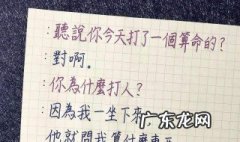 :聽說你今天打了一個算命的?
:對啊.
:你為什麼打人?
:因為我一坐下來
他就問我算什麼東西
广东龙网